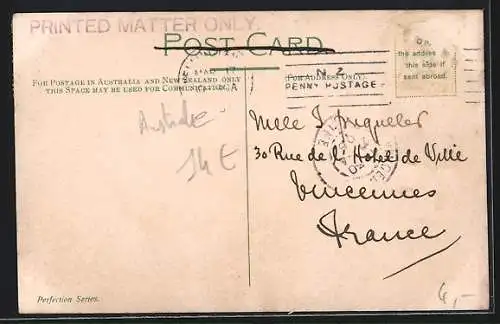 PRINTED MATTER ONLY.
POST CARD
FOR POSTAGE IN AUSTRALIA AND NEW ZEALAND ONLY
THIS SPACE MAY BE USED FOR COMMUNICATION.
(FOR ADDRESS ONLY.)
N Z
PENNY POSTAGE
the address on
this side if
sent abroad.
Australie
14 €
Melle J.
30 Rue de l'Hotel de Ville
Vincennes
France
Perfection Series.
4,-